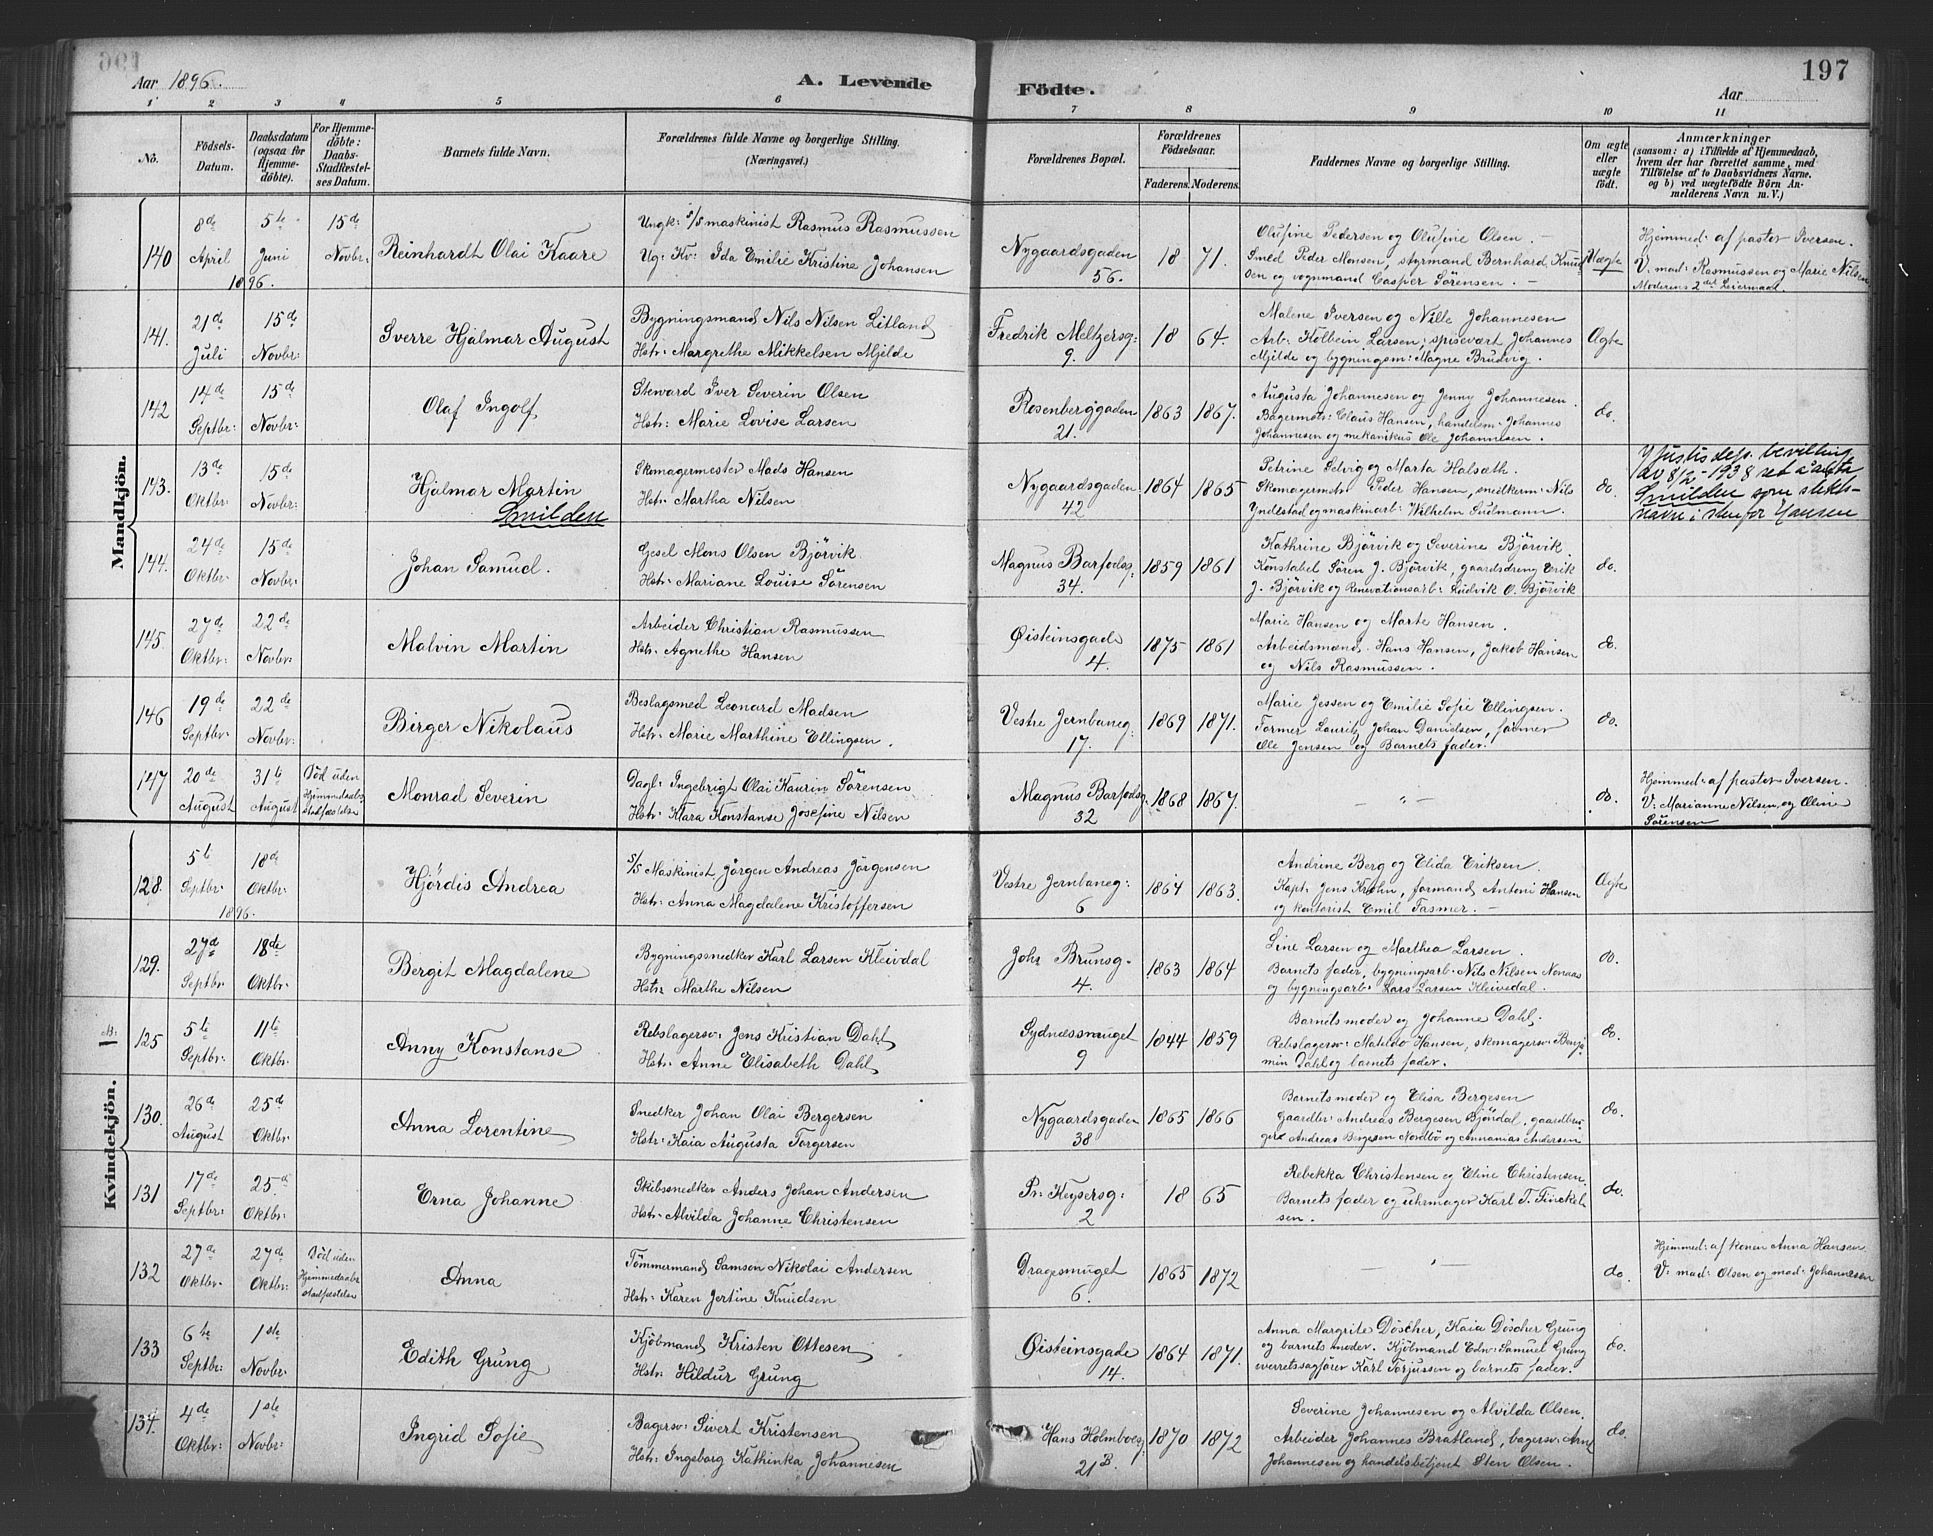 Aar 1896.
A. Levende
Födte.
Aar
197
1 2 3 4 5 6 7 8 9 10 11
No.
Födsels-Datum.
Daabsdatum (ogsaa for Hjemme-döbte).
For Hjemme-döbte: Daabs-Stadfæstel-ses Datum.
Barnets fulde Navn.
Forældrenes fulde Navne og borgerlige Stilling. (Næringsvei.)
Forældrenes Bopæl.
Forældrenes Födselsaar.
Faderens. Moderens.
Faddernes Navne og borgerlige Stilling.
Om ægte eller uægte födt.
Anmærkninger
(saasom: a) i Tilfælde af Hjemmedaab,
hvem der har forrettet samme, med
Tilföielse af to Daabsvidners Navne.
og b) ved uægtefödte Börn An-
melderens Navn m. V.)
Mandkjön.
140
8de April 1896.
5te Juni
15de Novbr:
Reinhardt Olai Kaare
Ungk: S/S maskinist Rasmus Rasmussen
Ug: Kv: Ida Emilie Kristine Johansen
Nygaardsgaden 56.
18 71.
Olufine Pedersen og Olufine Olsen. -
Smed Peder Monsen, styrmand Bernhard Knud-
sen og vognmand Casper Sörensen. -
Uægte
Hjemmed: af pastor Iversen.
V: mad: Rasmussen og Marie Nilsen
Moderens 2det Leiermaal.
141.
21de Juli
15de Novbr:
Sverre Hjalmar August
Bygningsmand Nils Nilsen Litland
Hstr: Margrethe Mikkelsen Mjelde
Fredrik Meltzersg: 9.
18 64.
Malene Iversen og Nille Johannesen
Arb: Kolbein Larsen, spisevært Johannes
Mjelde og bygningsm: Magne Brudvig.
Ægte
142
14de Septbr:
15de Novbr:
Olaf Ingolf
Steward Iver Severin Olsen
Hstr: Marie Lovise Larsen
Rosenberggaden 21.
1863 1867.
Augusta Johannesen og Jenny Johannesen.
Bagermstr: Claus Hansen, handelsm: Johannes
Johannesen og mekanikus Ole Johannesen.
do.
143.
13de Oktbr:
15de Novbr:
Hjalmar Martin
Smilden
Skomagermester Mads Hansen
Hstr: Martha Nilsen
Nygaardsgaden 42
1864 1865
Petrine Selvig og Marta Halsæth.
Skomagermstr: Peder Hansen, snedkerm: Nils
Yndestad og maskinarb: Wilhelm
do.
Justisdep. bevilling
av 8/2-1938 ret å anta
Smilden som slekts-
navn i stedfor Hansen
144.
24de Oktbr:
15de Novbr:
Johan Samuel.
Gesel Mons Olsen Björvik
Hstr: Mariane Louise Sörensen
Magnus Barfodsg: 34.
1859 1861
Kathrine Björvik og Severine Björvik.
Konstabel Sören J. Björvik, gaardsdreng Erik
J. Björvik og Renovationsarb: Ludvik O. Björvik
do.
145.
27de Oktbr:
22de Novbr:
Malvin Martin
Arbeider Christian Rasmussen
Hstr: Agnethe Hansen
Øisteinsgade 4.
1875 1861
Marie Hansen og Marte Hansen.
Arbeidsmænd Hans Hansen, Jakob Hansen
og Nils Rasmussen.
do.
146
19de Septbr:
22de Novbr:
Birger Nikolaus
Beslagsmed Leonard Madsen
Hstr: Marie Marthine Ellingsen.
Vestre Jernbaneg: 17.
1869 1871.
Marie Jessen og Emilie Sofie Ellingsen.
Former Laurits Johan Danielsen, former
Ole Jensen og Barnets fader.
do.
147
20de August
31te August
Död uden Hjemmedaabs stadfæstelse
Monrad Severin
Dagl: Ingebrigt Olai Kaurin Sörensen
Hstr: Klara Konstanse Josefine Nilsen
Magnus Barfodsg: 32
1868 1867.
- " -
do.
Hjemmed: af pastor Iversen.
V: Marianne Nilsen og Oline
Sörensen
Kvindekjön.
128.
5te Septbr: 1896.
18de Oktbr:
Hjördis Andrea
S/S Maskinist Jörgen Andreas Jörgensen
Hstr: Anna Magdalene Kristoffersen
Vestre Jernbaneg: 6
1864 1863.
Andrine Berg og Elida Eriksen.
Kapt: Jens Krohn, formand Antoni Hansen
og kontorist Emil Fasmer. -
Ægte
129.
27de Septbr:
18de Oktbr:
Bergit Magdalene
Bygningssnedker Karl Larsen Kleivdal
Hstr: Marthe Nilsen
Johs Brunsg- 4.
1863 1864
Line Larsen og Marthea Larsen.
Barnets fader, bygningsarb. Nils Nilsen Nonaas
og bygningsarb. Lars Larsen Kleivedal.
do.
125
5te Septbr:
11te Oktbr:
Anny Konstanse
Rebslagersv: Jens Kristian Dahl
Hstr: Anne Elisabeth Dahl
Sydnæssmuget 9
1844 1859
Barnets moder og Johanne Dahl.
Rebslagersv: Hansen, skomagersv: Benja
min Dahl og barnets fader.
do.
130.
26de August
25de Oktbr:
Anna Lorentine
Snedker Johan Olai Bergersen
Hstr: Kaia Augusta Torgersen
Nygaardsgaden 38
1865 1866
Barnets moder og Elisa Bergesen
Gaardbr: Andreas Bergesen Bjöndal, gaardbru-
ger Andreas Bergesen Nordbö og Annanias Andersen
do.
131
17de Septbr:
25de Oktbr:
Erna Johanne
Skibssnedker Anders Johan Andersen
Hstr: Alvilda Johanne Christensen
Pr: Keysersg: 2
18 65
Rebekka Christensen og Eline Christensen.
Barnets fader og uhrmager Karl T. Sinckel-
sen.
do.
132
27de Oktbr:
27de Oktbr:
Död uden Hjemmedaabs stadfæstelse
Anna
Tömmermand Samson Nikolai Andersen
Hstr: Karen Jertine Knudsen
Dragesmuget 6.
1865 1872
- " -
do.
Hjemmed: af konen Anna Hansen
V: mad: Olsen og mad: Johannesen
133
6te Septbr:
1ste Novbr:
Edith Grung
Kjöbmand Kristen Ottesen
Hstr: Hildur Grung
Øisteinsgade 14.
1864 1871.
Anna Margrite Döscher, Kaia Döscher Grung
og barnets moder. Kjöbmand Edv: Samuel Grung
overretssagförer Karl Torjussen og barnets fader.
do.
134.
4de Oktbr:
1ste Novbr:
Ingrid Sofie
Bagersv: Sivert Kristensen
Hstr: Ingeborg Kathinka Johannesen
Hans Holmboesg: 21B.
1870 1872
Severine Johannesen og Alvilda Olsen.
Arbeider Johannes Bratland, bagersv: Arne
Johannesen og handelsbetjent Sten Olsen.
do.